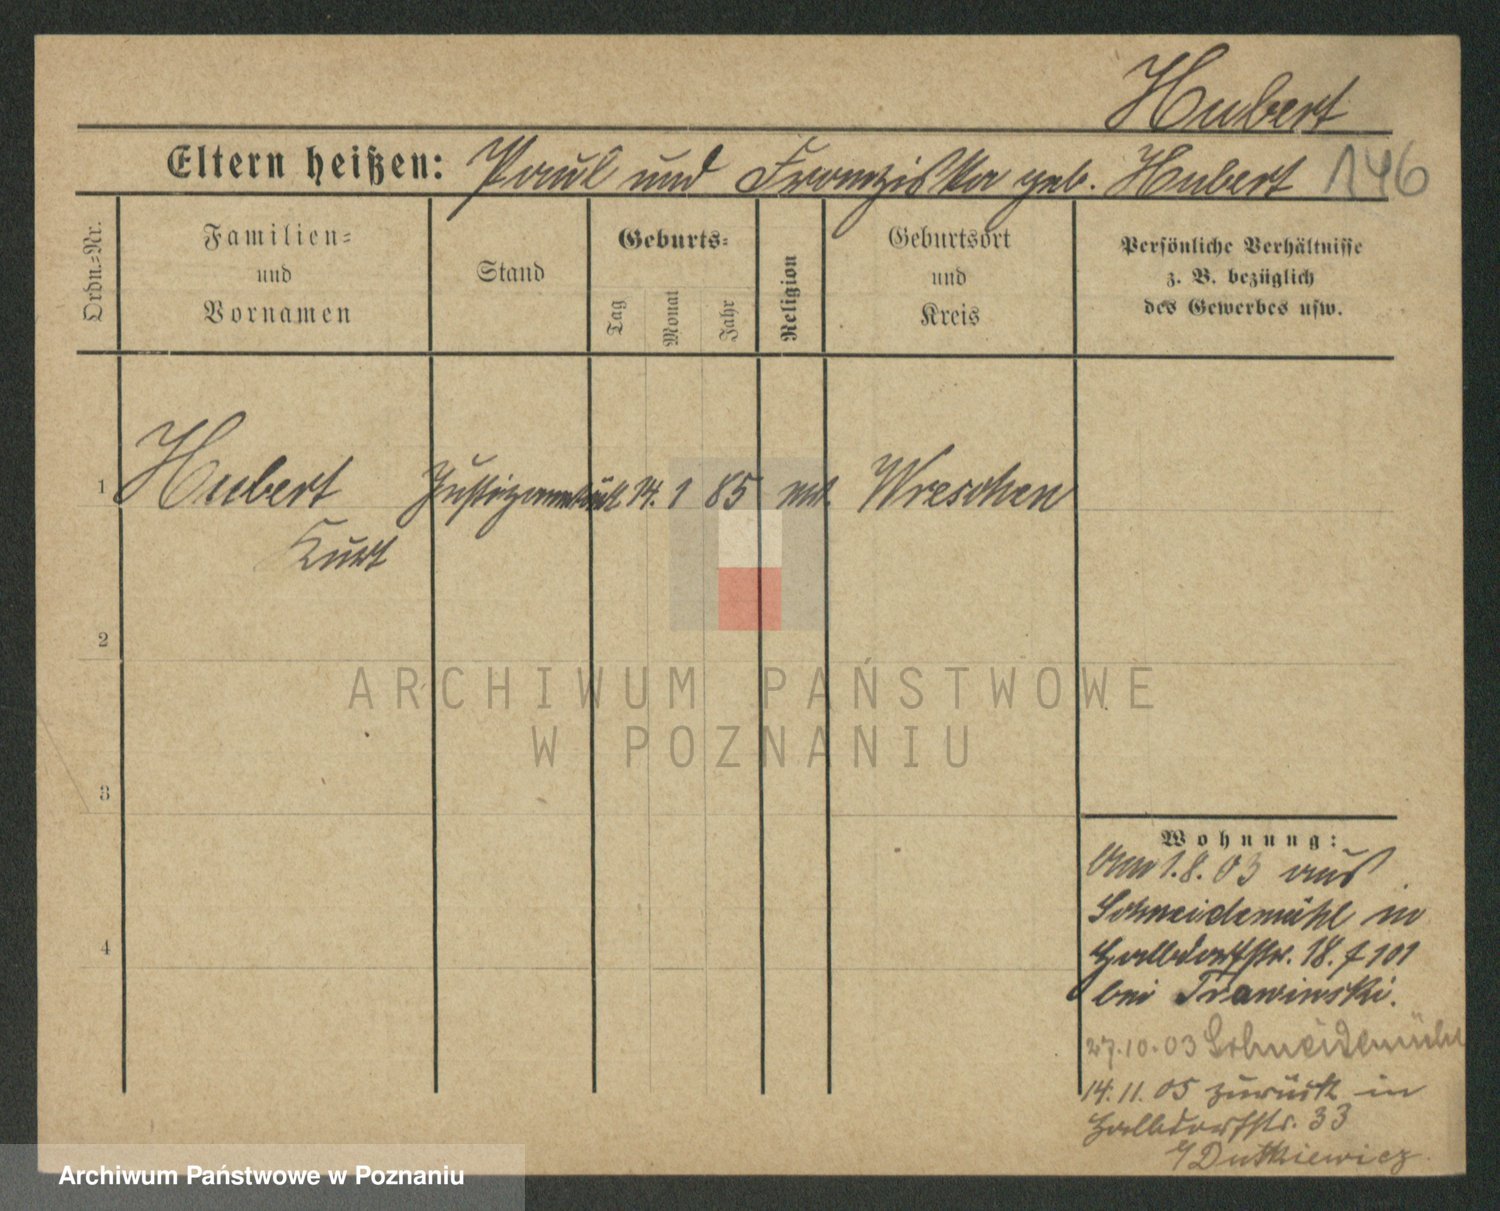 Hubert
Eltern heißen: Paul und Franziska geb. Hubert 146
Ordn.-Nr.
Familien-
und
Vornamen
Stand
Geburts-
Tag
Monat
Jahr
Religion
Geburtsort
und
Kreis
Persönliche Verhältnisse
z. B. bezüglich
des Gewerbes usw.
1 Hubert 14. 1 85 Wreschen
Kurt
2
3
4
ARCHIWUM PAŃSTWOWE
W POZNANIU
Wohnung:
Am 1.8.03 aus
Schneidemühl in
Halldorfstr. 18. 101
bei Trawinski.
27.10.03 Schneidemühl
14.11.05 zurück in
Halldorfstr. 33
Dutkiewicz.
Archiwum Państwowe w Poznaniu